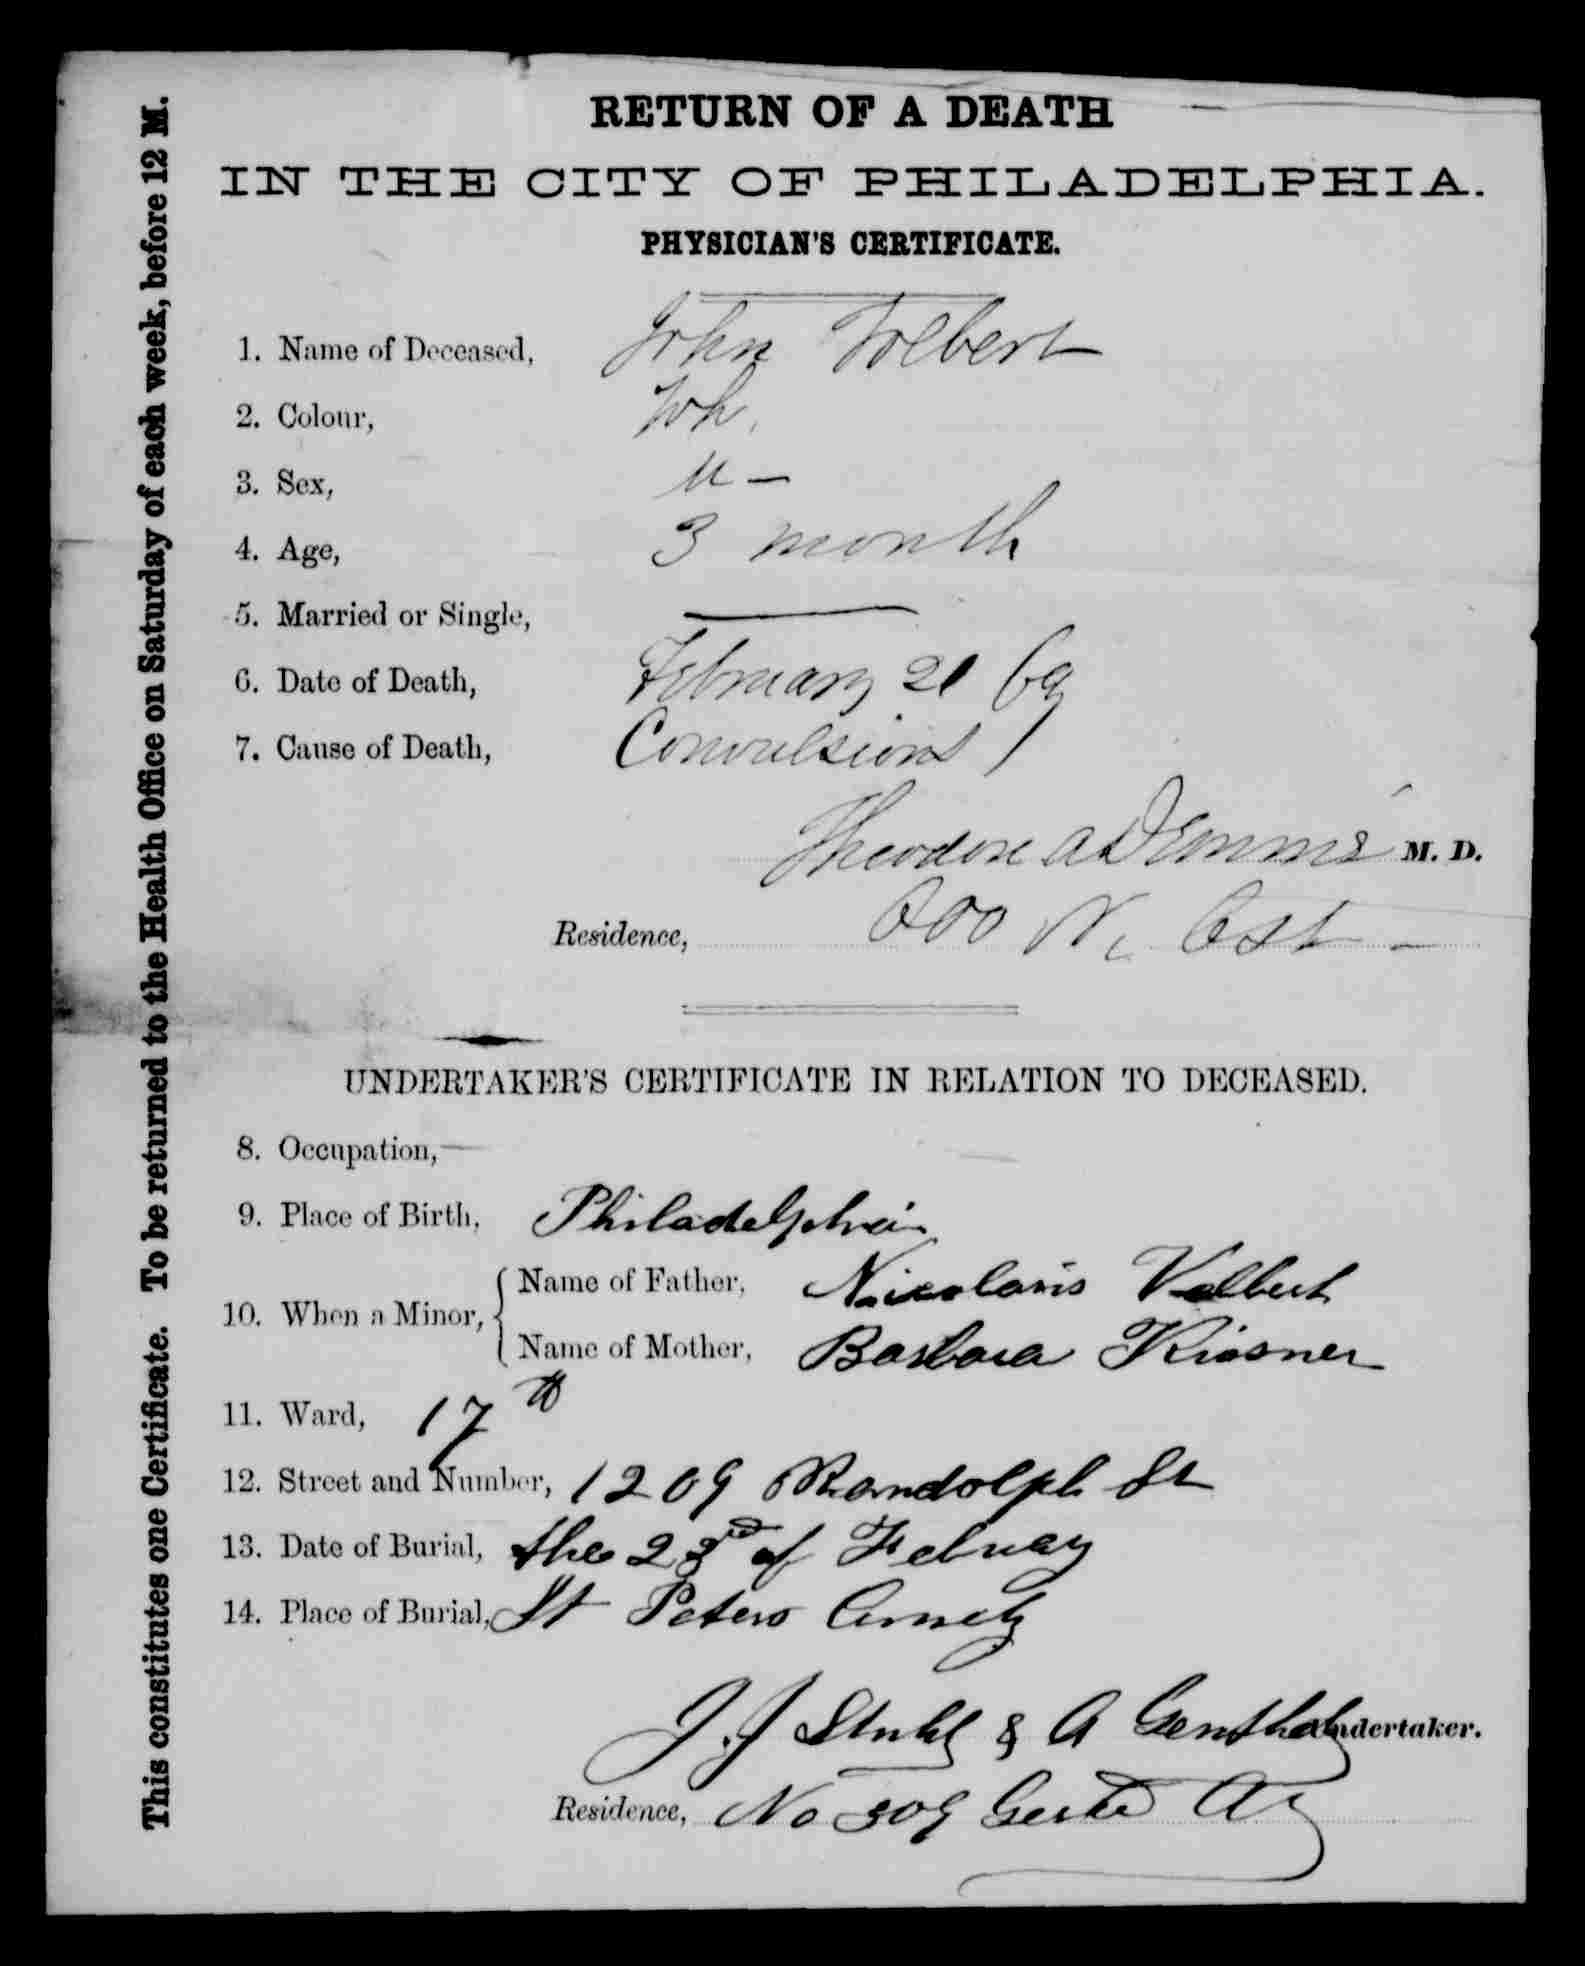 RETURN OF A DEATH
IN THE CITY OF PHILADELPHIA.
PHYSICIAN'S CERTIFICATE.
1. Name of Deceased, John Volbert
2. Colour, Wh.
3. Sex, M —
4. Age, 3 month
5. Married or Single, —
6. Date of Death, February 21 69
7. Cause of Death, Convulsions
Theodore A Demmé M. D.
Residence, 800 N. 6 St —
UNDERTAKER'S CERTIFICATE IN RELATION TO DECEASED.
8. Occupation, —
9. Place of Birth, Philadelphia
10. When a Minor, { Name of Father, Nicolaus Volbert
Name of Mother, Barbara Kissner
11. Ward, 17th
12. Street and Number, 1209 Randolph St
13. Date of Burial, the 23rd of Februay
14. Place of Burial, St Peters Cmety
J. J Stuhl & A Genthal Undertaker.
Residence, No 509 Av
This constitutes one Certificate. To be returned to the Health Office on Saturday of each week, before 12 M.